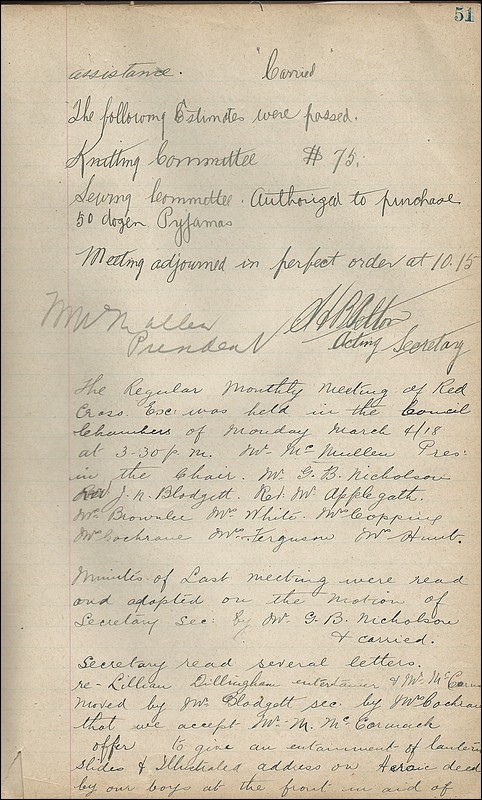 51
assistance. "Carried"
The following Estimates were passed.
Knitting Committee $ 75.
Sewing Committee. Authorized to purchase
50 dozen Pyjamas
Meeting adjourned in perfect order at 10.15
W McMullen
President
Acting Secretary
The Regular Monthly Meeting of Red
Cross. Exc: was held in the Council
Chambers of Monday March 4/18
at 3-30 p.m. Mr. McMullen Pres:
in the Chair. Mr. G. B. Nicholson
Rev J. N. Blodgett. Rev. Mr. Applegath.
Mrs Brownlee Mrs White. Mrs Copping
Mrs Cochrane Mrs Ferguson Mrs Hunt.
Minutes of Last meeting were read
and adopted on the motion of
Secretary Sec: by Mr. G. B. Nicholson
& carried.
Secretary read several letters.
re- Lillian Dillingham entertainer & Mr. McCorm
Moved by Mr Blodgett sec. by Mrs Cochran
that we accept Mr. M. McCormack
offer to give an entainment of lantern
slides & Illustrated address on Heroic deed
by our boys at the front in aid of